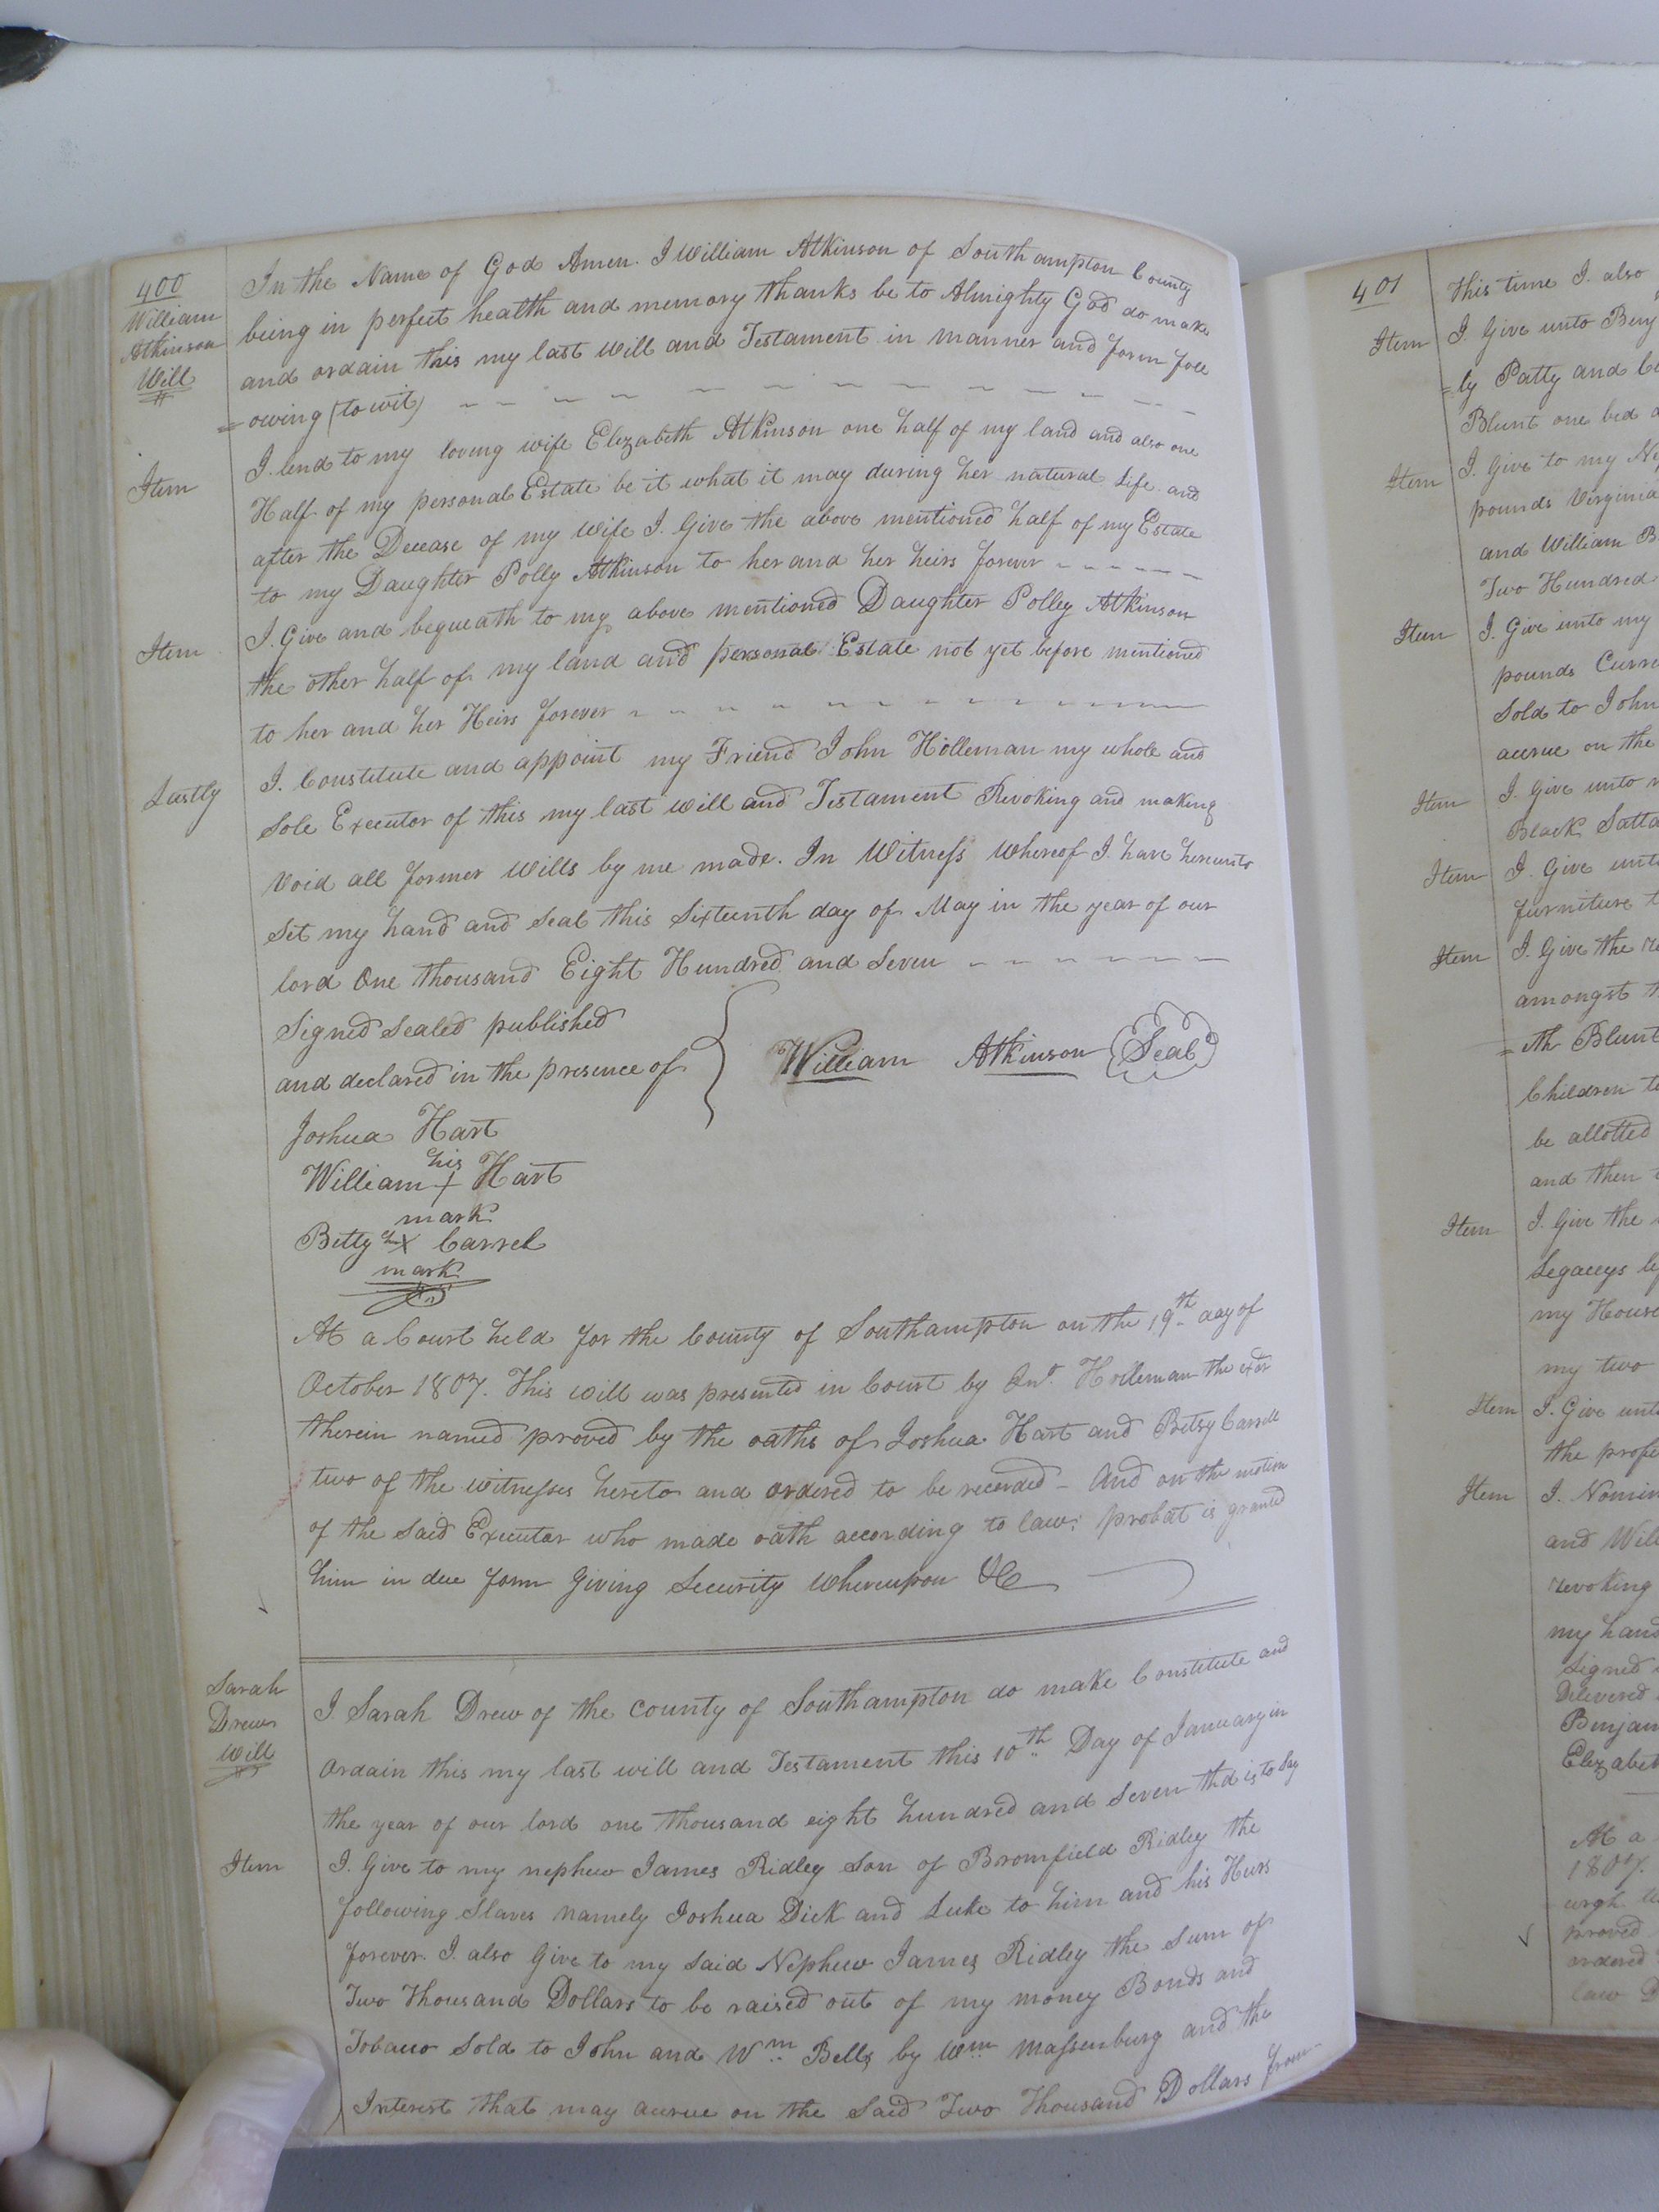 400
William
Atkinson
Will
In the Name of God Amen. I William Atkinson of Southampton County
being in perfect health and memory thanks be to Almighty God do make
and ordain this my last Will and Testament in manner and form foll
=owing (to wit)
Item I lend to my loving wife Elizabeth Atkinson one half of my land and also one
Half of my personal Estate be it what it may during her natural Life and
after the Decease of my Wife I Give the above mentioned half of my Estate
to my Daughter Polly Atkinson to her and her heirs forever
Item I Give and bequeath to my above mentioned Daughter Polley Atkinson
the other half of my land and personal Estate not yet before mentioned
to her and her Heirs forever
Lastly I Constitute and appoint my Friend John Holleman my whole and
Sole Executor of this my last will and Testament Revoking and making
Void all former Wills by me made. In Witness Whereof I have hereunto
Set my hand and Seal this Sixteenth day of May in the year of our
lord One thousand Eight Hundred and Seven
Signed Sealed published
and declared in the presence of
William Atkinson Seal
Joshua Hart
his
William + Hart
mark
Betty X Carrel
mark
At a Court held for the County of Southampton on the 19th day of
October 1807. This Will was presented in Court by Jno. Holleman the exor
therein named proved by the oaths of Joshua Hart and Betsy Carrell
two of the witnesses hereto and ordered to be recorded - And on the motion
of the Said Executor who made oath according to law: probat is granted
him in due form Giving Security Whereupon &c
Sarah
Drews
Will
I Sarah Drew of the County of Southampton do make Constitute and
Ordain this my last will and Testament this 10th Day of January in
the year of our lord one thousand eight hundred and Seven that is to Say
Item I Give to my nephew James Ridley Son of Bromfield Ridley the
following Slaves namely Joshua Dick and Luke to him and his Heirs
forever. I also Give to my Said Nephew James Ridley the Sum of
Two Thousand Dollars to be raised out of my money Bonds and
Tobacco Sold to John and Wm Bells by Wm Massenburg and the
Interest that may accrue on the Said Two Thousand Dollars from
401
this time I also
Item I Give unto Benj
=ly Patty and
Blunt one bed
Item I Give to my
pounds Virginia
and William B
Two Hundred
Item I Give unto my
pounds Curre
Sold to John
accrue on the
Item I Give unto
Black
Item I Give unto
furniture
Item I Give the
amongst
=th Blunt
Children to
be allotted
and then
Item I Give the
Legaceys
my House
my two
Item I Give unto
the
Item I Nomin
and Will
revoking
my hand
Signed
Delivered
Benjam
Elizabet
At a
1807.
proved
ordered
law